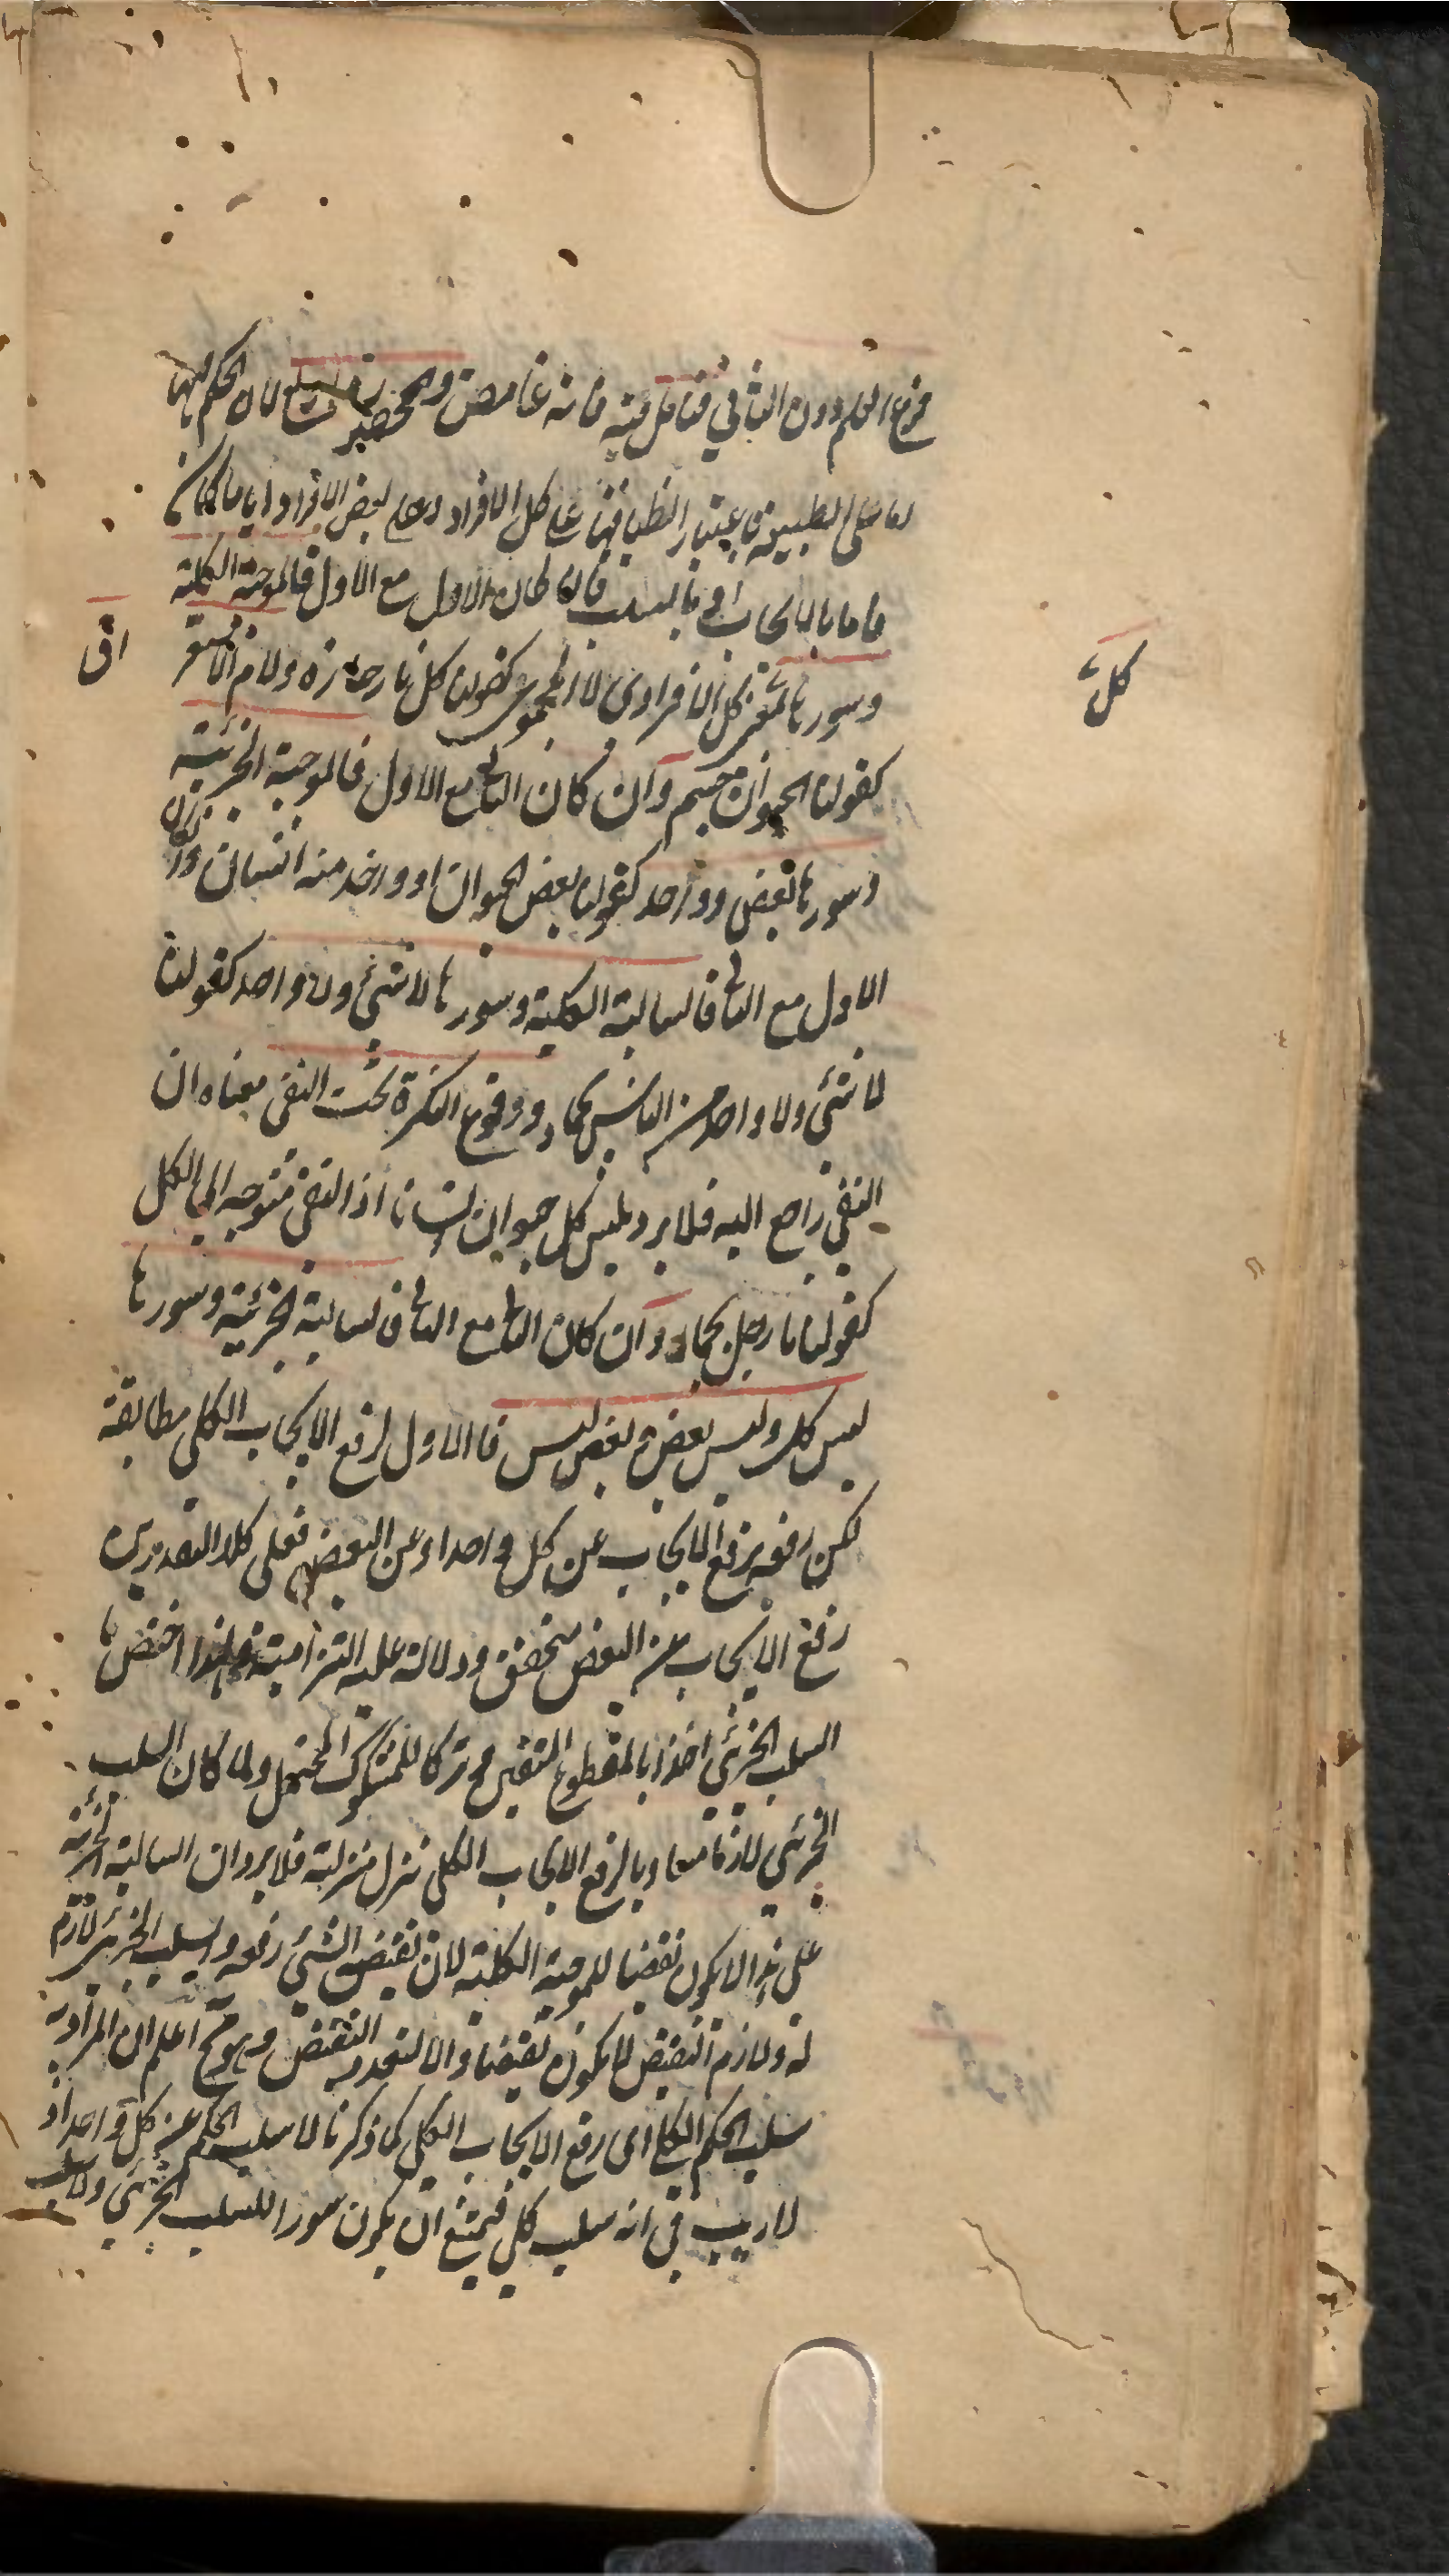 فرع العلم دون الثاني فتامل فيه فانه غامض والمحصورة اربع لان الحكم فيها
اما على الطبيعة باعتبار انطباقها على كل الافراد او على بعض الافراد وايا ما كان
فاما بالايجاب او بالسلب فان كان الاول مع الاول فالموجبة الكلية
وسورها لفظ كل الافرادى لا المجموعى كقولنا كل نار حارة ولام الاستغر
اق
كل
كقولنا الحيوان جسم وان كان الثانى مع الاول فالموجبة الجزئية
وسورها بعض وواحد كقولنا بعض الحيوان او واحد منه انسان وان كان
الاول مع الثانى فالسالبة الكلية وسورها لا شئ ولا واحد كقولنا
لا شئ ولا واحد من الناس بجماد ووقوع النكرة تحت النفى معناه ان
النفى راجع اليه فلا يرد ليس كل حيوان انسانا اذ النفى متوجه الى الكل
كقولنا ما رجل بجماد وان كان الثانى مع الثانى فالسالبة الجزئية وسورها
ليس كل وليس بعض وبعض ليس فالاول لرفع الايجاب الكلى مطابقة
لكن رفعه برفع الايجاب عن كل واحد او عن البعض فعلى كلا التقديرين
رفع الايجاب عن البعض متحقق ودلالة عليه التزامية فلهذا اختص بها
السلب الجزئى اخذا بالمقطوع المتيقن وتركا للمشكوك المحتمل ولما كان السلب
الجزئى لازما مساويا لرفع الايجاب الكلى نزل منزلته فلا يرد ان السالبة الجزئية
على هذا لا يكون نقيضا للموجبة الكلية لان نقيض الشئ رفعه والسلب الجزئى لازم
له ولازم النقيض لا يكون نقيضا والا لتعدد النقيض وهو مح اعلم ان المراد به
سلب الحكم الكلى اى رفع الايجاب الكلى كما ذكرنا لا سلب الحكم عن كل واحد اذ
لا ريب فى انه سلب كلى فيمتنع ان يكون سورا للسلب الجزئى وليس